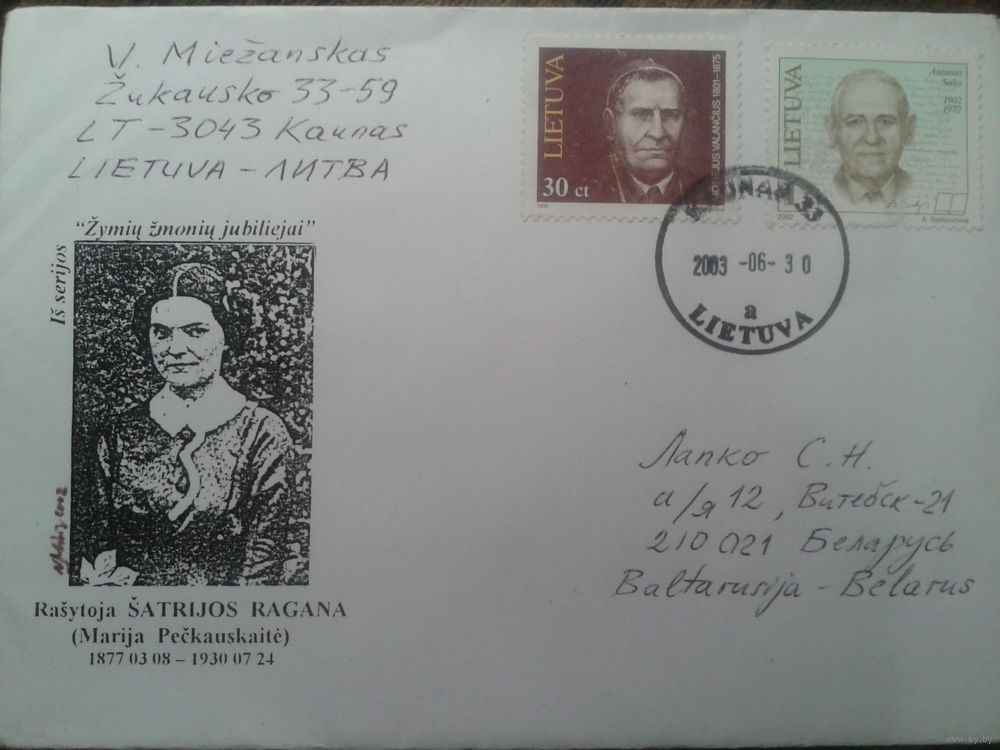 V. Miežanskas
Žukausko 33-59
LT-3043 Kaunas
LIETUVA - ЛИТВА
LIETUVA
30 ct
VALANČIUS 1801-1875
1995
LIETUVA
Antanas
Salys
1902
1972
2002
33
2003 -06- 30
a
LIETUVA
Iš serijos
"Žymių žmonių jubiliejai"
Rašytoja ŠATRIJOS RAGANA
(Marija Pečkauskaitė)
1877 03 08 – 1930 07 24
Лапко С.Н.
а/я 12, Витебск-21
210021 Беларусь
Baltarusija - Belarus
www.ay.by